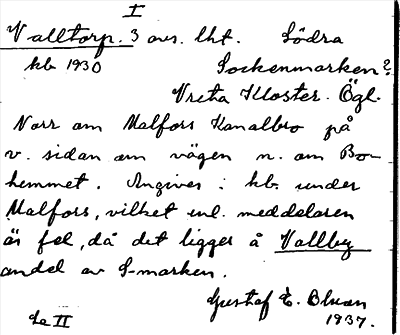 I
Valltorp. 3 avs. lht. Södra
kb 1930 Sockenmarken?
Vreta Kloster. Ögl.
Norr om Malfors Kanalbro på
v. sidan om vägen n. om Bo-
hemmet. Angives i kb. under
Malfors, vilket enl. meddelaren
är fel, då det ligger å Vallby
andel av S-marken.
Gustaf E.
Se II 1937.